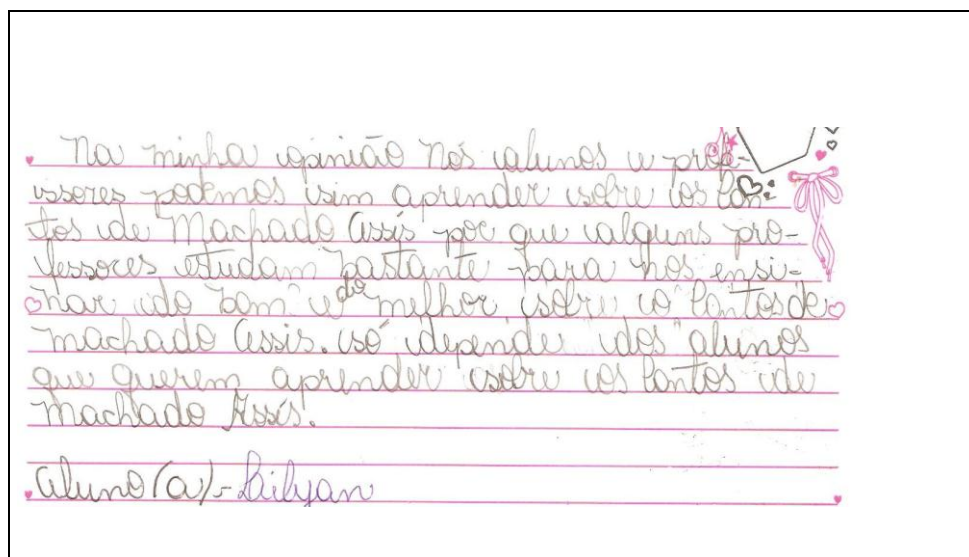 Na minha opinião nós alunos e prof-
issores podemos sim aprender sobre os Con-
tos de Machado Assis por que alguns pro-
fessores estudam bastante para nos ensi-
nar do bom e do melhor sobre o Contos de
machado Assis. só depende dos alunos
que querem aprender sobre os Contos de
machado Assis.
Aluno(a)- Lilyan